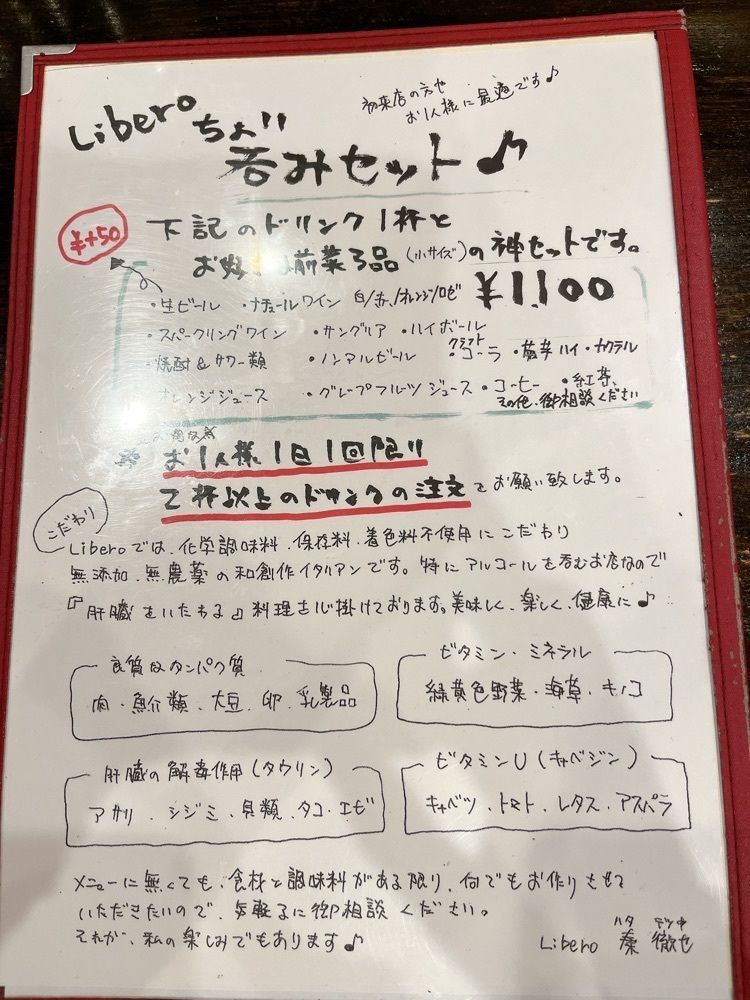 初来店の方や
お1人様に最適です♪
Libero ちょい
呑みセット♪
¥+50
下記のドリンク1杯と
お好きな前菜3品(小サイズ)の神セットです。
¥1,100
・生ビール ・ナチュールワイン 白/赤/オレンジ/ロゼ
・スパークリングワイン ・サングリア ・ハイボール
・焼酎&サワー類 ・ノンアルビール ・クラフトコーラ ・ ハイ ・カクテル
オレンジジュース ・グレープフルツジュース ・コーヒー ・紅茶、
その他、御相談ください
※ お1人様1日1回限り!!
2杯以上のドリンクの注文をお願い致します。
こだわり
Liberoでは、化学調味料、保存料、着色料不使用にこだわり
無添加、無農薬の和創作イタリアンです。特にアルコールを呑むお店なので
『肝臓をいたわる』料理を心掛けております。美味しく、楽しく、健康に♪
良質なタンパク質
肉・魚介類、大豆、卵、乳製品
ビタミン・ミネラル
緑黄色野菜・海草・キノコ
肝臓の解毒作用(タウリン)
アサリ、シジミ、貝類、タコ・エビ
ビタミンU(キャベジン)
キャベツ、トマト、レタス、アスパラ
メニューに無くても、食材と調味料がある限り、何でもお作りさせて
いただきたいので、気軽るに御相談ください。
それが、私の楽しみでもあります♪
ハタ テツヤ
Libero 秦 徹也